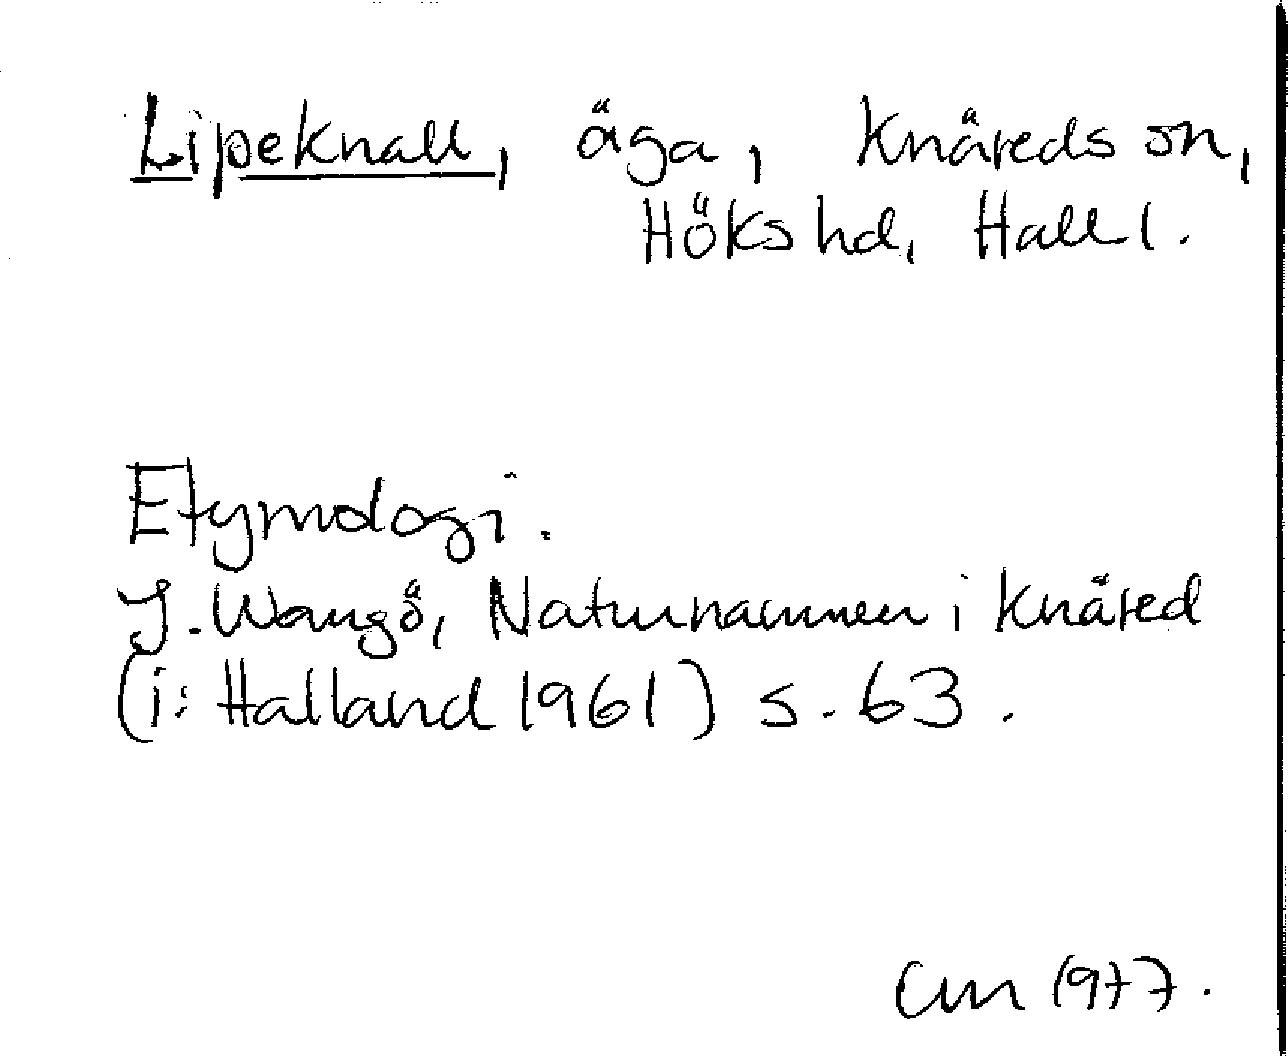 Lipeknall, äga, Knäreds sn,
Höks hd, Hall.
Etymologi.
J. Wangö, Naturnamnen i Knäred
(i: Halland 1961) s. 63.
Cm 1977.